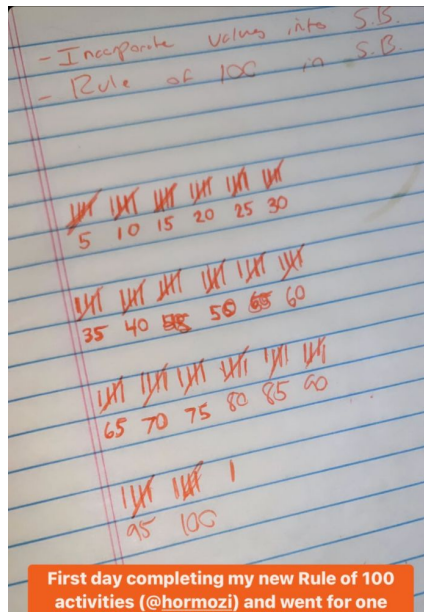 - Incorporate values into S.B.
- Rule of 100 in S.B.
5 10 15 20 25 30
35 40 45 50 55 60
65 70 75 80 85 90
95 100
First day completing my new Rule of 100
activities (@hormozi) and went for one